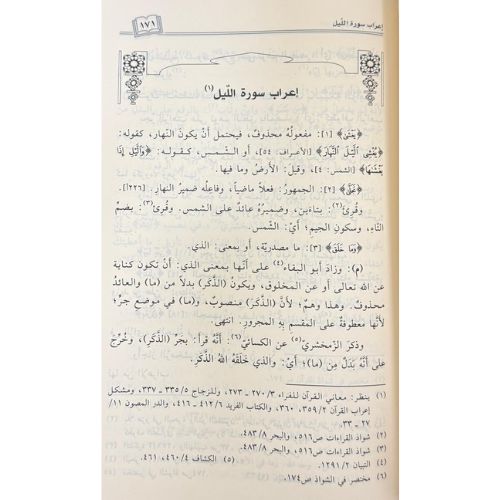 إعراب سورة اللّيل
١٧١
إعراب سورة اللّيل(١)
﴿يَغْشَى﴾ [١]: مفعولُه محذوف، فيحتمل أَنْ يكونَ النهار، كقوله:
﴿يُغْشِي اللَّيْلَ النَّهَارَ﴾ [الأعراف: ٥٤]، أو الشَّمس، كـقـولـه: ﴿وَاللَّيْلِ إِذَا
يَغْشَاهَا﴾ [الشمس: ٤]، وقيلَ: الأرضُ وما فيها.
﴿تَجَلَّى﴾ [٢]: الجمهورُ: فعلاً ماضياً، وفاعلُه ضميرُ النهارِ. [٢٢٦].
وقُرئَ(٢): بتاءَين، وضميرُهُ عائدٌ على الشمسِ. وقُرئَ(٣): بضمِّ
التَّاءِ، وسكونِ الجيمِ؛ أيْ: الشَّمسُ.
﴿وَمَا خَلَقَ﴾ [٣]: ما مصدريّة، أو بمعنى: الذي.
(م): وزادَ أبو البقاء(٤) على أنَّها بمعنى الذي: أَنْ تكونَ كناية
عن الله تعالى أو عن المخلوق، ويكونُ (الذَّكَر) بدلاً من (ما)، والعائدُ
محذوفٌ. وهذا وهمٌ؛ لأنَّ (الذَّكرَ) منصوبٌ، و(ما) في موضعِ جرٍّ؛
لأنَّها معطوفةٌ على المقسمِ بهِ المجرورِ. انتهى.
وذكرَ الزَّمخشريُّ(٥) عن الكسائيِّ(٦): أنَّهُ قرأَ: بجَرِّ (الذَّكرِ)، وخُرِّجَ
على أنَّهُ بَدَلٌ مِن (ما)؛ أيْ: والذي خَلَقَهُ اللهُ الذَّكَرِ.
(١) ينظر: معاني القرآن للفراء ٢٧٠/٣ - ٢٧٣، وللزجاج ٣٣٥/٥ - ٣٣٧، ومشكل
إعراب القرآن ٣٥٩/٢، ٣٦٠، والكتاب الفريد ٤١٢/٦ - ٤١٦، والدر المصون ١١/
٢٧ - ٣٣.
(٢) شواذ القراءات ص٥١٦، والبحر ٤٨٣/٨.
(٣) شواذ القراءات ص٥١٦، والبحر ٤٨٣/٨.
(٤) التبيان ١٢٩١/٢.
(٥) الكشاف ٤٦٠/٤، ٤٦١.
(٦) مختصر في الشواذ ص١٧٤.